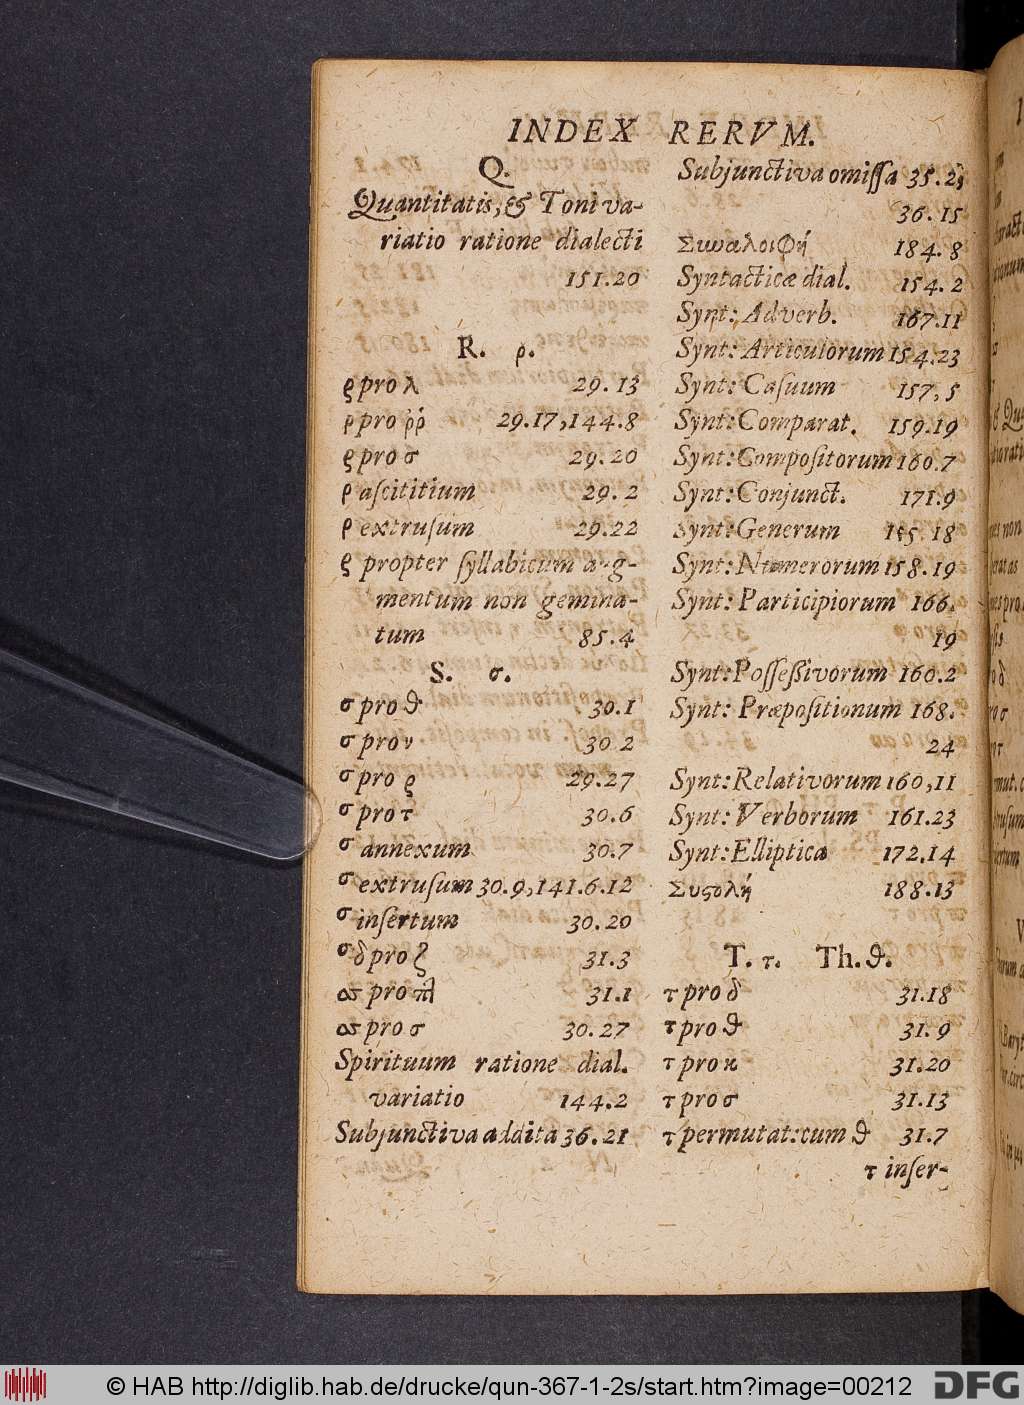 INDEX RERVM.
Q.
Quantitatis, & Toni va-
riatio ratione dialecti
151.20
R. ρ.
ϱ pro λ 29.13
ρ pro ῤῥ 29.17,144.8
ϱ pro σ 29.20
ρ ascititium 29.2
ρ extrusum 29.22
ϱ propter syllabicum aug-
mentum non gemina-
tum 85.4
S. σ.
σ pro ϑ 30.1
σ pro ν 30 2
σ pro ϱ 29.27
σ pro τ 30.6
σ annexum 30.7
σ extrusum 30.9,141.6.12
σ insertum 30.20
σδ pro ζ 31.3
31.1
pro σ 30.27
Spirituum ratione dial.
variatio 144.2
Subjunctiva addita 36.21
Subjunctiva omissa 35.2;
36.15
Συναλοιφή 184.8
Syntacticæ dial. 154.2
Synt: Adverb. 167.11
Synt: Articulorum 154.23
Synt: Casuum 157,5
Synt: Comparat. 159.19
Synt: Compositorum 160.7
Synt: Conjunct. 171.9
Synt: Generum 155.18
Synt: Numerorum 158.19
Synt: Participiorum 166.
19
Synt: Possessivorum 160.2
Synt: Præpositionum 168.
24
Synt: Relativorum 160,11
Synt: Verborum 161.23
Synt: Elliptica 172.14
Συϛολή 188.13
T. τ. Th. ϑ.
τ pro δ 31.18
τ pro ϑ 31.9
τ pro κ 31.20
τ pro σ 31.13
τ permutat: cum ϑ 31.7
τ inser-
© HAB http://diglib.hab.de/drucke/qun-367-1-2s/start.htm?image=00212
DFG